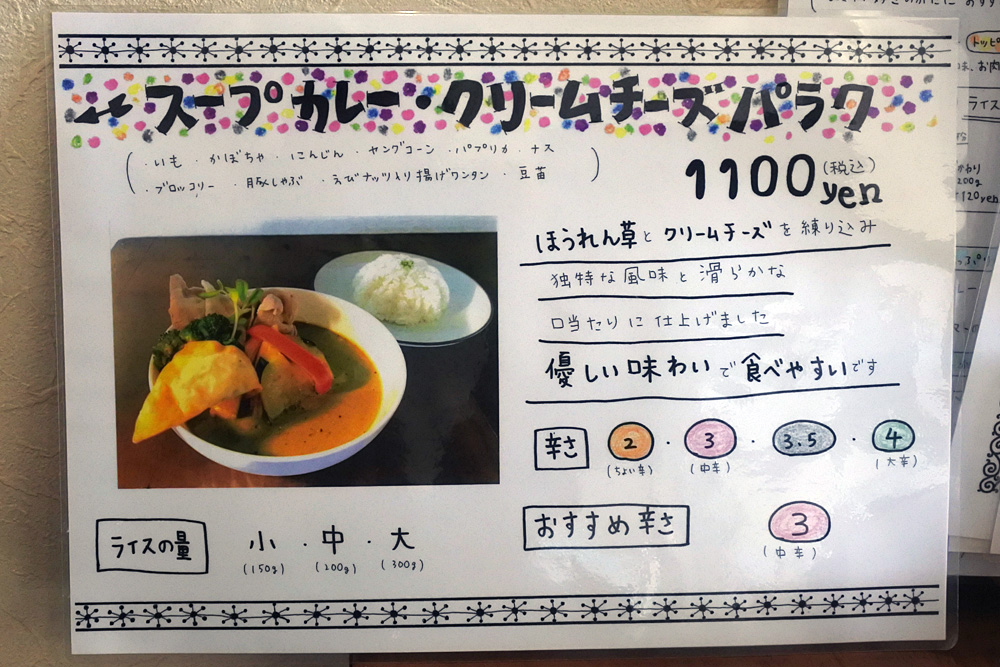 スープカレー・クリームチーズパラク
(・いも ・かぼちゃ ・にんじん ・ヤングコーン ・パプリカ ・ナス
・ブロッコリー ・豚しゃぶ ・えびナッツ入り揚げワンタン ・豆苗)
1100yen(税込)
ほうれん草とクリームチーズを練り込み
独特な風味と滑らかな
口当たりに仕上げました
優しい味わいで食べやすいです
辛さ 2・3・3.5・4
(ちょい辛) (中辛) (大辛)
おすすめ辛さ 3
(中辛)
ライスの量 小・中・大
(150g) (200g) (300g)
トッピ
ライス
200g
120yen